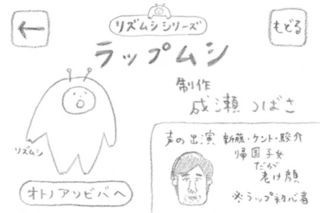 リズムシシリーズ
もどる
ラップムシ
制作
成瀬つばさ
リズムシ
オトノアソビバへ
声の出演 斬藤・ケント・
帰国子女
だが
老け顔
※ラップ初心者